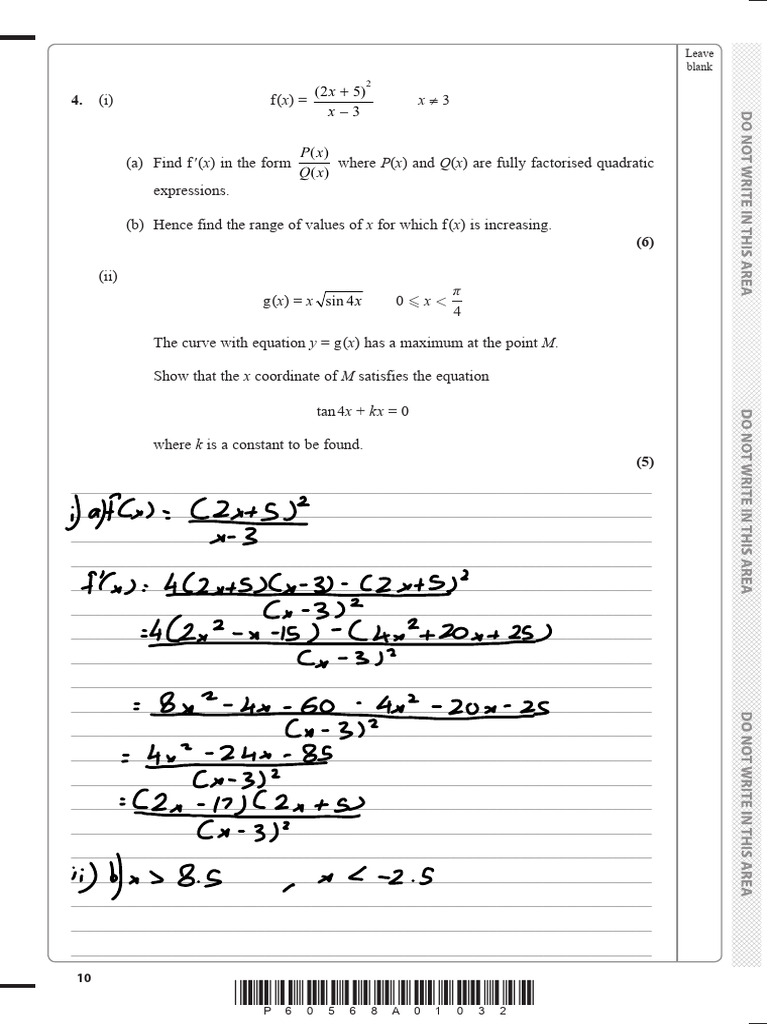 Leave
blank
4. (i) f(x) = (2x + 5)² / (x – 3) x ≠ 3
(a) Find f′(x) in the form P(x)/Q(x) where P(x) and Q(x) are fully factorised quadratic
expressions.
(b) Hence find the range of values of x for which f(x) is increasing.
(6)
(ii)
g(x) = x √(sin 4x) 0 ⩽ x < π/4
The curve with equation y = g(x) has a maximum at the point M.
Show that the x coordinate of M satisfies the equation
tan 4x + kx = 0
where k is a constant to be found.
(5)
i) a) f(x) = (2x+5)² / (x-3)
f'(x) = (4(2x+5)(x-3) - (2x+5)²) / (x-3)²
= (4(2x² - x - 15) - (4x² + 20x + 25)) / (x-3)²
= (8x² - 4x - 60 - 4x² - 20x - 25) / (x-3)²
= (4x² - 24x - 85) / (x-3)²
= (2x - 17)(2x + 5) / (x-3)²
ii) b) x > 8.5 , x < -2.5
10
P60568A01032
DO NOT WRITE IN THIS AREA
DO NOT WRITE IN THIS AREA
DO NOT WRITE IN THIS AREA